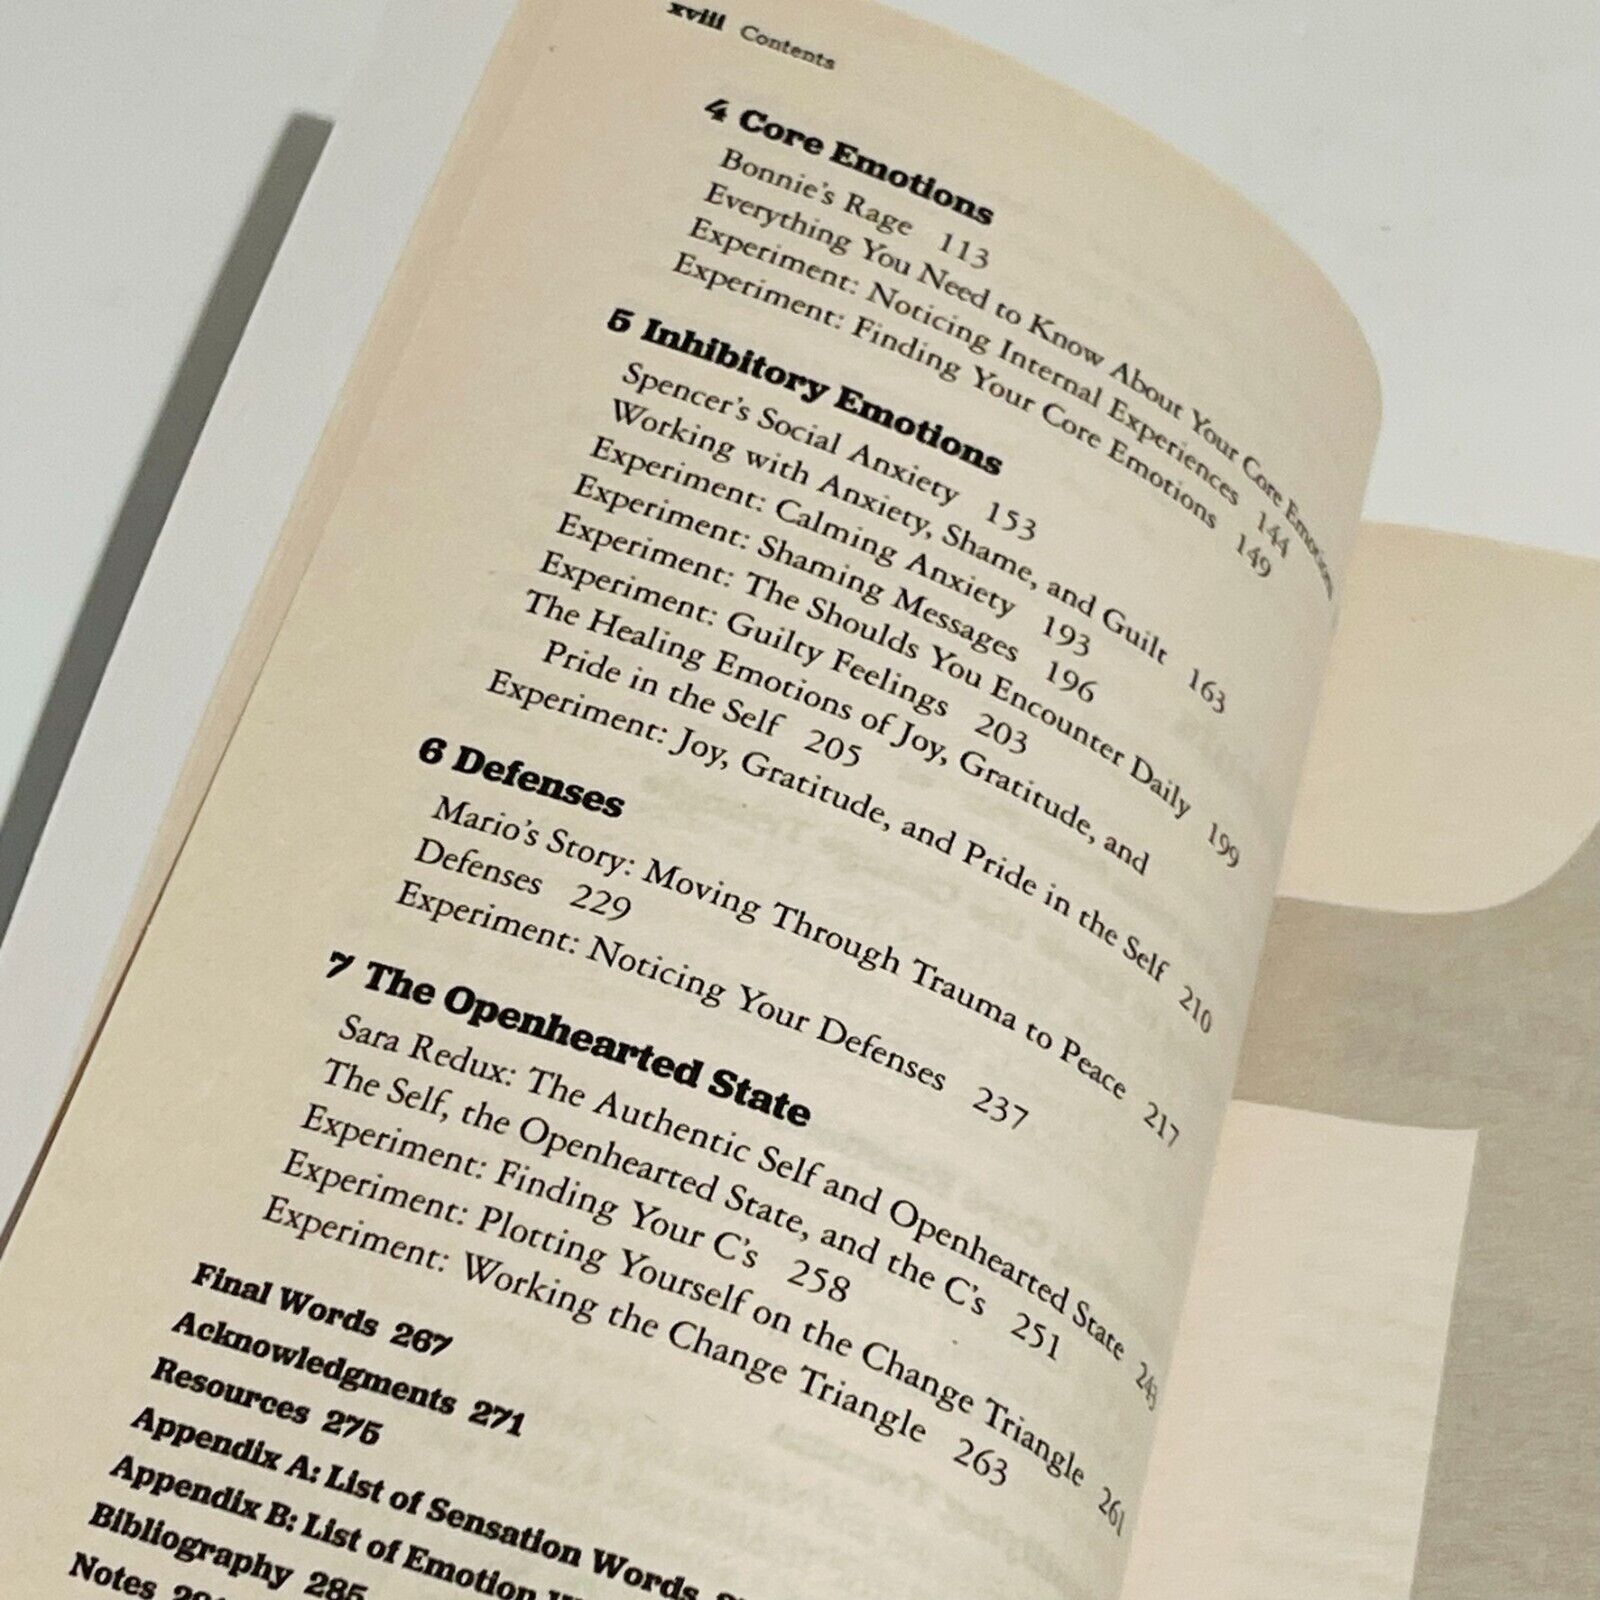 xviii Contents
4 Core Emotions
Bonnie's Rage 113
Everything You Need to Know About Your Core Emotions
Experiment: Noticing Internal Experiences 144
Experiment: Finding Your Core Emotions 149
5 Inhibitory Emotions
Spencer's Social Anxiety 153
Working with Anxiety, Shame, and Guilt 163
Experiment: Calming Anxiety 193
Experiment: Shaming Messages 196
Experiment: The Shoulds You Encounter Daily 199
Experiment: Guilty Feelings 203
The Healing Emotions of Joy, Gratitude, and
Pride in the Self 205
Experiment: Joy, Gratitude, and Pride in the Self 210
6 Defenses
Mario's Story: Moving Through Trauma to Peace 217
Defenses 229
Experiment: Noticing Your Defenses 237
7 The Openhearted State
Sara Redux: The Authentic Self and Openhearted State 243
The Self, the Openhearted State, and the C's 251
Experiment: Finding Your C's 258
Experiment: Plotting Yourself on the Change Triangle 261
Experiment: Working the Change Triangle 263
Final Words 267
Acknowledgments 271
Resources 275
Appendix A: List of Sensation Words
Appendix B: List of Emotion
Bibliography 285
Notes